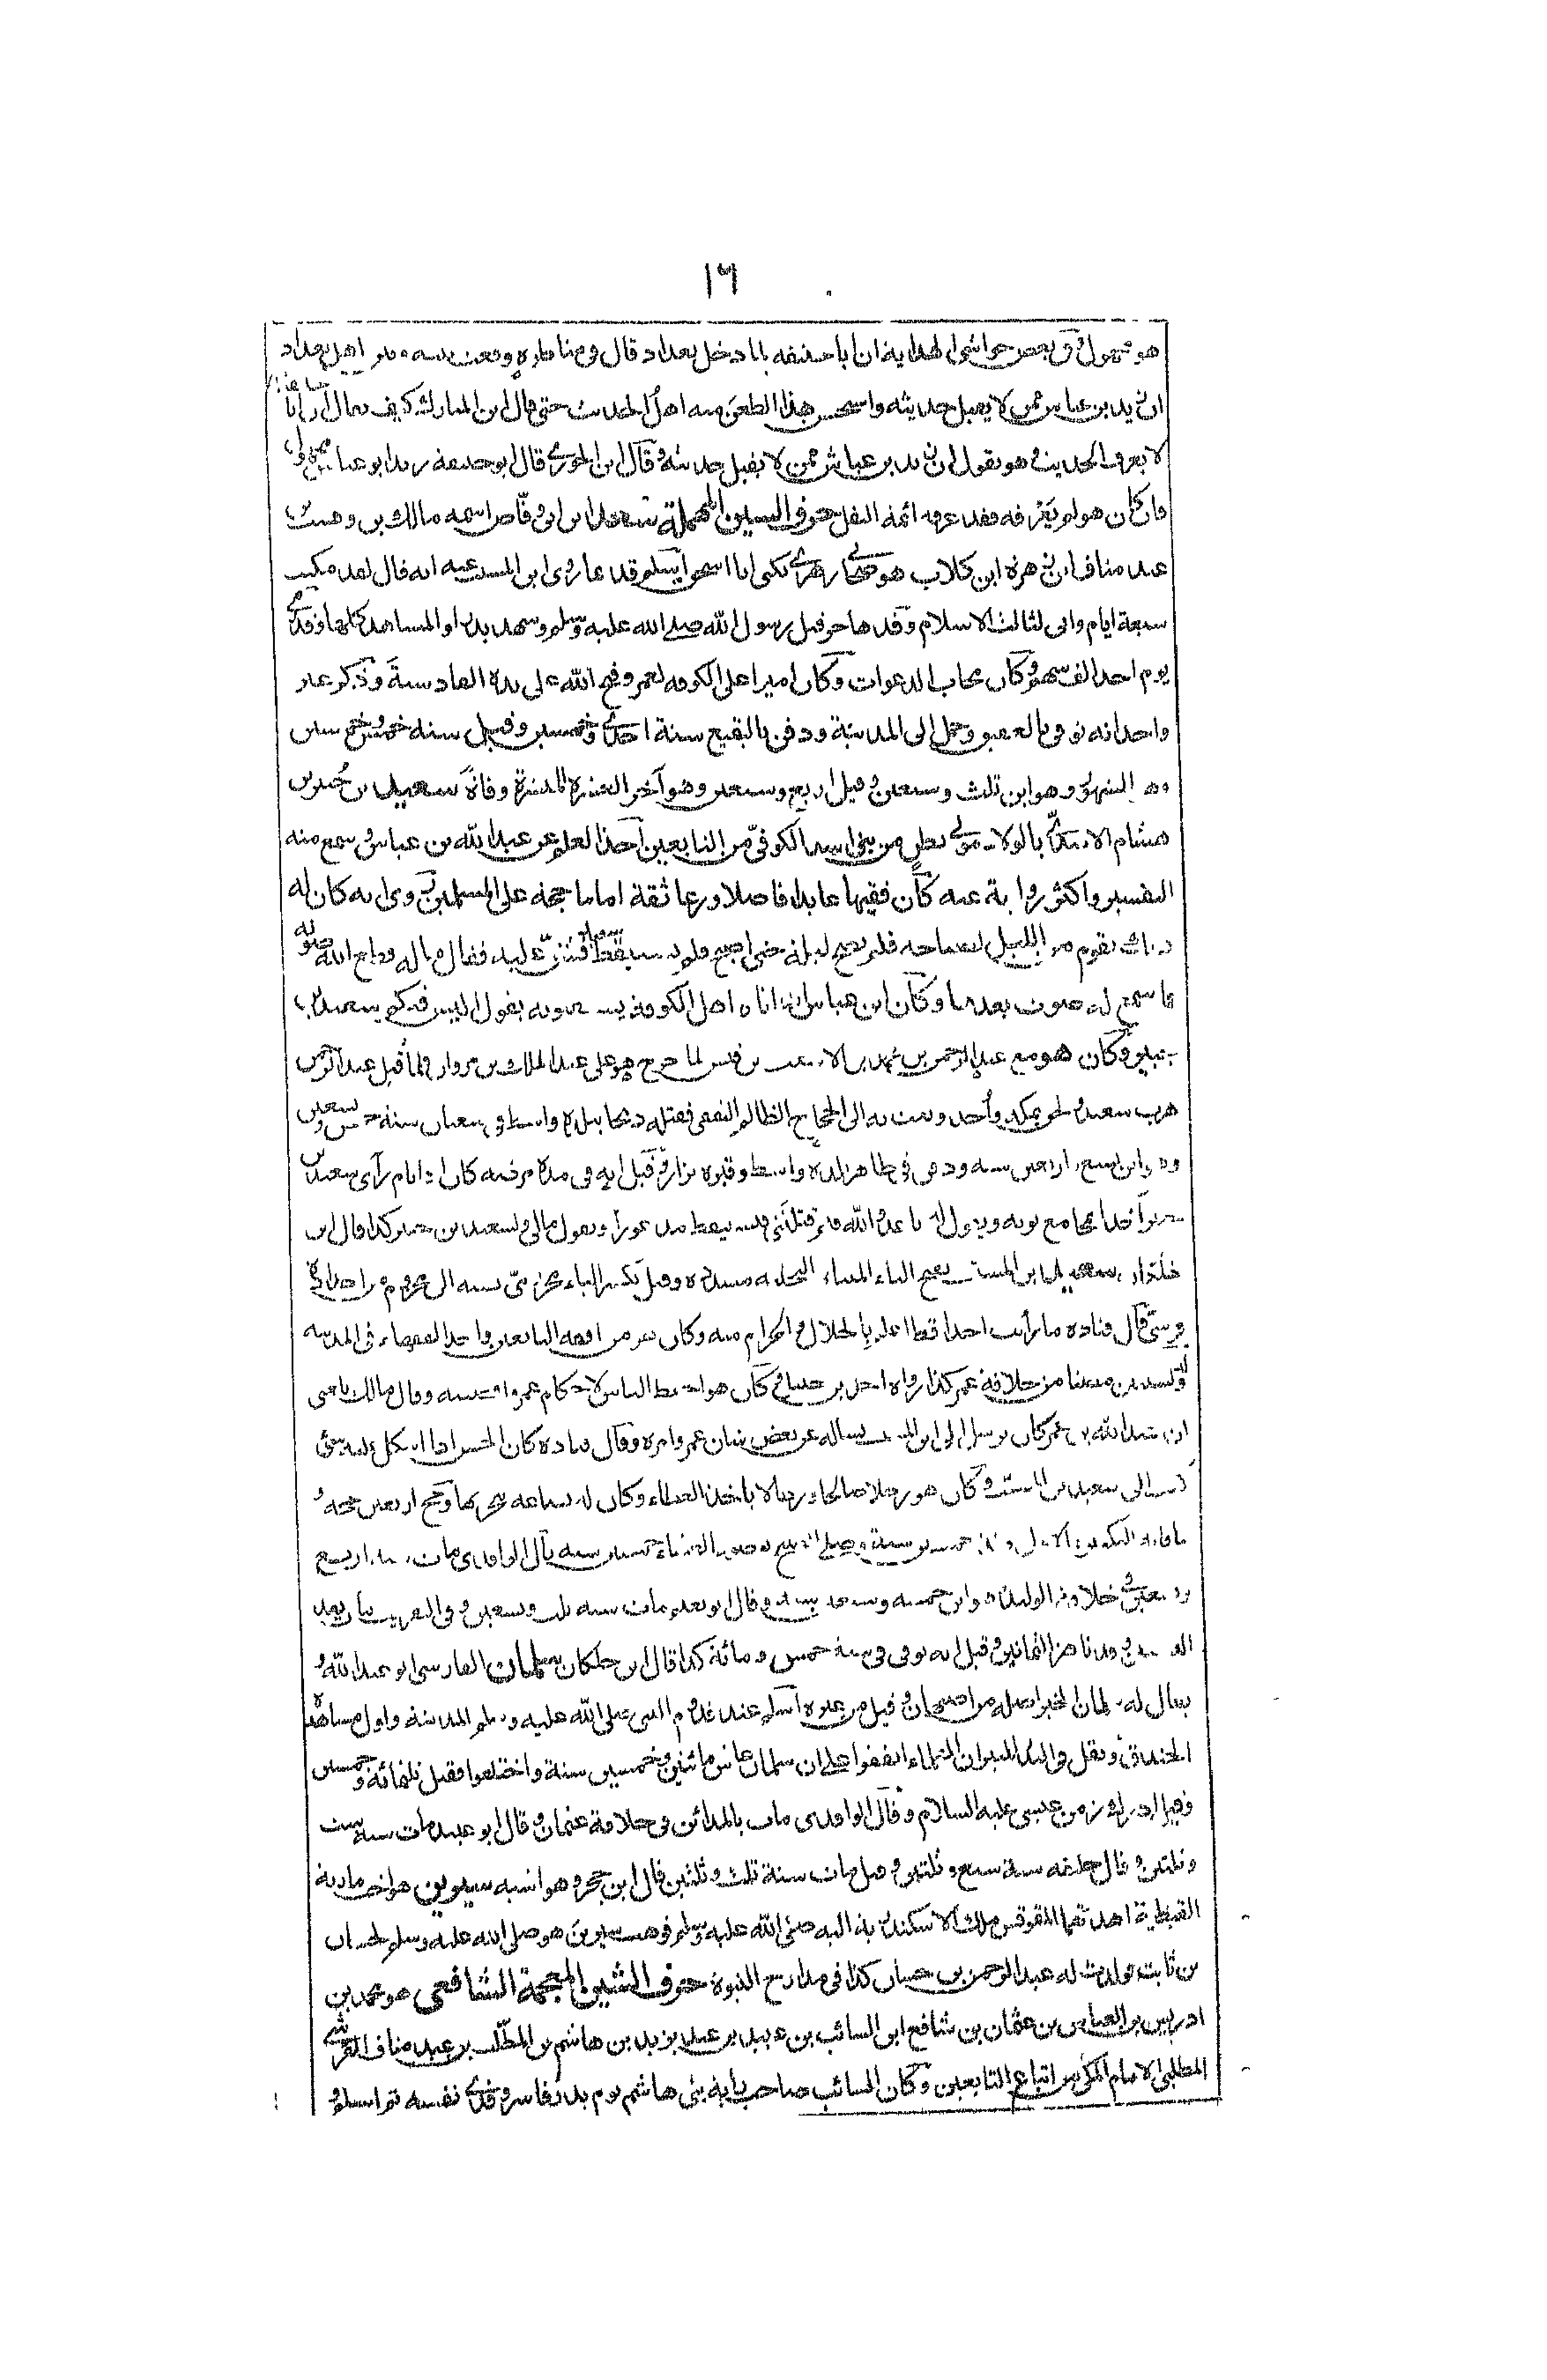 ١٦
هو مجهول وفي بعض حواشي الهداية ان ابا حنيفة لما دخل بغداد قال في مناظرة وقعت بينه وبين اهل بغداد
ان زيد بن عياش ممن لا يقبل حديثه واستحسن هذا الطعن منه اهل الحديث حتى قال ابن المبارك كيف يقال ان ابا حنيفة
لا يعرف الحديث وهو يقول ان زيد بن عياش ممن لا يقبل حديثه وقال ابن الجوزي قال ابو حنيفة زيد ابو عياش مجهول
فان كان هو لم يعرفه فقد عرفه ائمة النقل حرف السين المهملة سعد ابن ابي وقاص اسمه مالك بن وهيب بن
عبد مناف ابن زهرة ابن كلاب هو صحابي زهري يكنى ابا اسحق اسلم قديما روى ابن المسيب عنه انه قال لقد مكثت
سبعة ايام واني لثالث الاسلام وقد هاجر قبل رسول الله صلى الله عليه وسلم وشهد بدرا والمشاهد كلها وقد رمى
يوم احد الف سهم وكان مجاب الدعوات وكان اميرا على الكوفة لعمر وفتح الله على يده القادسية وذكر غير
واحد انه توفي بالعقيق وحمل الى المدينة ودفن بالبقيع سنة احدى وخمسين وقيل سنة خمس وخمسين
وهو المشهور وهو ابن ثلث وسبعين وقيل اربع وسبعين وهو آخر العشرة المبشرة وفاة سعيد بن جبير بن
هشام الاسدي بالولاء مولى بطن من بني اسد الكوفي من التابعين اخذ العلم عن عبد الله بن عباس وسمع منه
التفسير واكثر رواية عنه كان فقيها عابدا فاضلا ورعا ثقة اماما حجة على المسلمين روى انه كان له
ديك يقوم من الليل لصياحه فلم يصح ليلة حتى اصبح فلم يستيقظ سعيد فشق عليه فقال ما له قطع الله صوته
فما سمع له صوت بعدها وكان ابن عباس اذا اتاه اهل الكوفة يستفتونه يقول اليس فيكم سعيد بن
جبير وكان هو مع عبد الرحمن بن محمد بن الاشعث بن قيس لما خرج على عبد الملك بن مروان فلما قتل عبد الرحمن
هرب سعيد ولحق بمكة وأخذ وبعث به الى الحجاج الظالم الثقفي فقتله ببلدة واسط في شعبان سنة خمس وتسعين
وهو ابن تسع واربعين سنة ودفن في ظاهر بلدة واسط وقبره يزار وقيل انه في مدة مرضه كان اذا نام رأى سعيد بن
جبير آخذا بمجامع ثوبه ويقول له يا عدو الله فيم قتلتني فيستيقظ مذعورا ويقول مالي ولسعيد بن جبير كذا قال ابن
خلكان سعيد ابن المسيب بفتح الياء المثناة التحتية مشددة وقيل بكسر الياء
قال قتادة ما رأيت احدا قط اعلم بالحلال والحرام منه وكان من افقه التابعين واحد الفقهاء في المدينة
ولد لسنتين مضتا من خلافة عمر كذا رواه احمد بن حنبل وكان هو احفظ الناس لاحكام عمر واقضيته وقال مالك بلغني
ان عبد الله بن عمر كان يرسل الى ابن المسيب يسأله عن بعض شان عمر وامره وقال قتادة كان الحسن اذا اشكل عليه شئ
كتب الى سعيد بن المسيب وكان هو رجلا صالحا لا يأخذ العطاء وكان له بضاعة يتجر بها وحج اربعين حجة و
ما فاتته التكبيرة الاولى منذ خمسين سنة وصلى الصبح بوضوء العشاء خمسين سنة قال الواقدي مات سنة اربع
وتسعين في خلافة الوليد وهو ابن خمسة وسبعين سنة وقال ابو نعيم مات سنة ثلث وتسعين وفي التقريب مات بعد
التسعين وقد ناهز الثمانين وقيل انه توفي في سنة خمس ومائة كذا قال ابن خلكان سلمان الفارسي ابو عبد الله و
يقال له سلمان الخير اصله من اصبهان وقيل من غيره اسلم عند قدوم النبي صلى الله عليه وسلم المدينة واول مشاهده
الخندق ونقل ان العلماء اتفقوا على ان سلمان عاش مائتين وخمسين سنة واختلفوا فقيل ثلثمائة وخمسين
وقيل ادرك زمن عيسى عليه السلام وقال الواقدي مات بالمدائن في خلافة عثمان وقال ابو عبيد مات سنة ست
وثلثين وقال خليفة سنة سبع وثلثين وقيل مات سنة ثلث وثلثين قال ابن حجر وهو اشبه سيرين هو اخت مارية
القبطية اهدتهما المقوقس ملك الاسكندرية اليه صلى الله عليه وسلم فوهب سيرين هو صلى الله عليه وسلم لحسان
بن ثابت فولدت له عبد الرحمن بن حسان كذا في مدارج النبوة حرف الشين المعجمة الشافعي هو محمد بن
ادريس بن العباس بن عثمان بن شافع ابن السائب بن عبيد بن عبد يزيد بن هاشم بن المطلب بن عبد مناف القرشي
المطلبي الامام المكي من اتباع التابعين وكان السائب صاحب راية بني هاشم يوم بدر فاسر وفدى نفسه ثم اسلم و